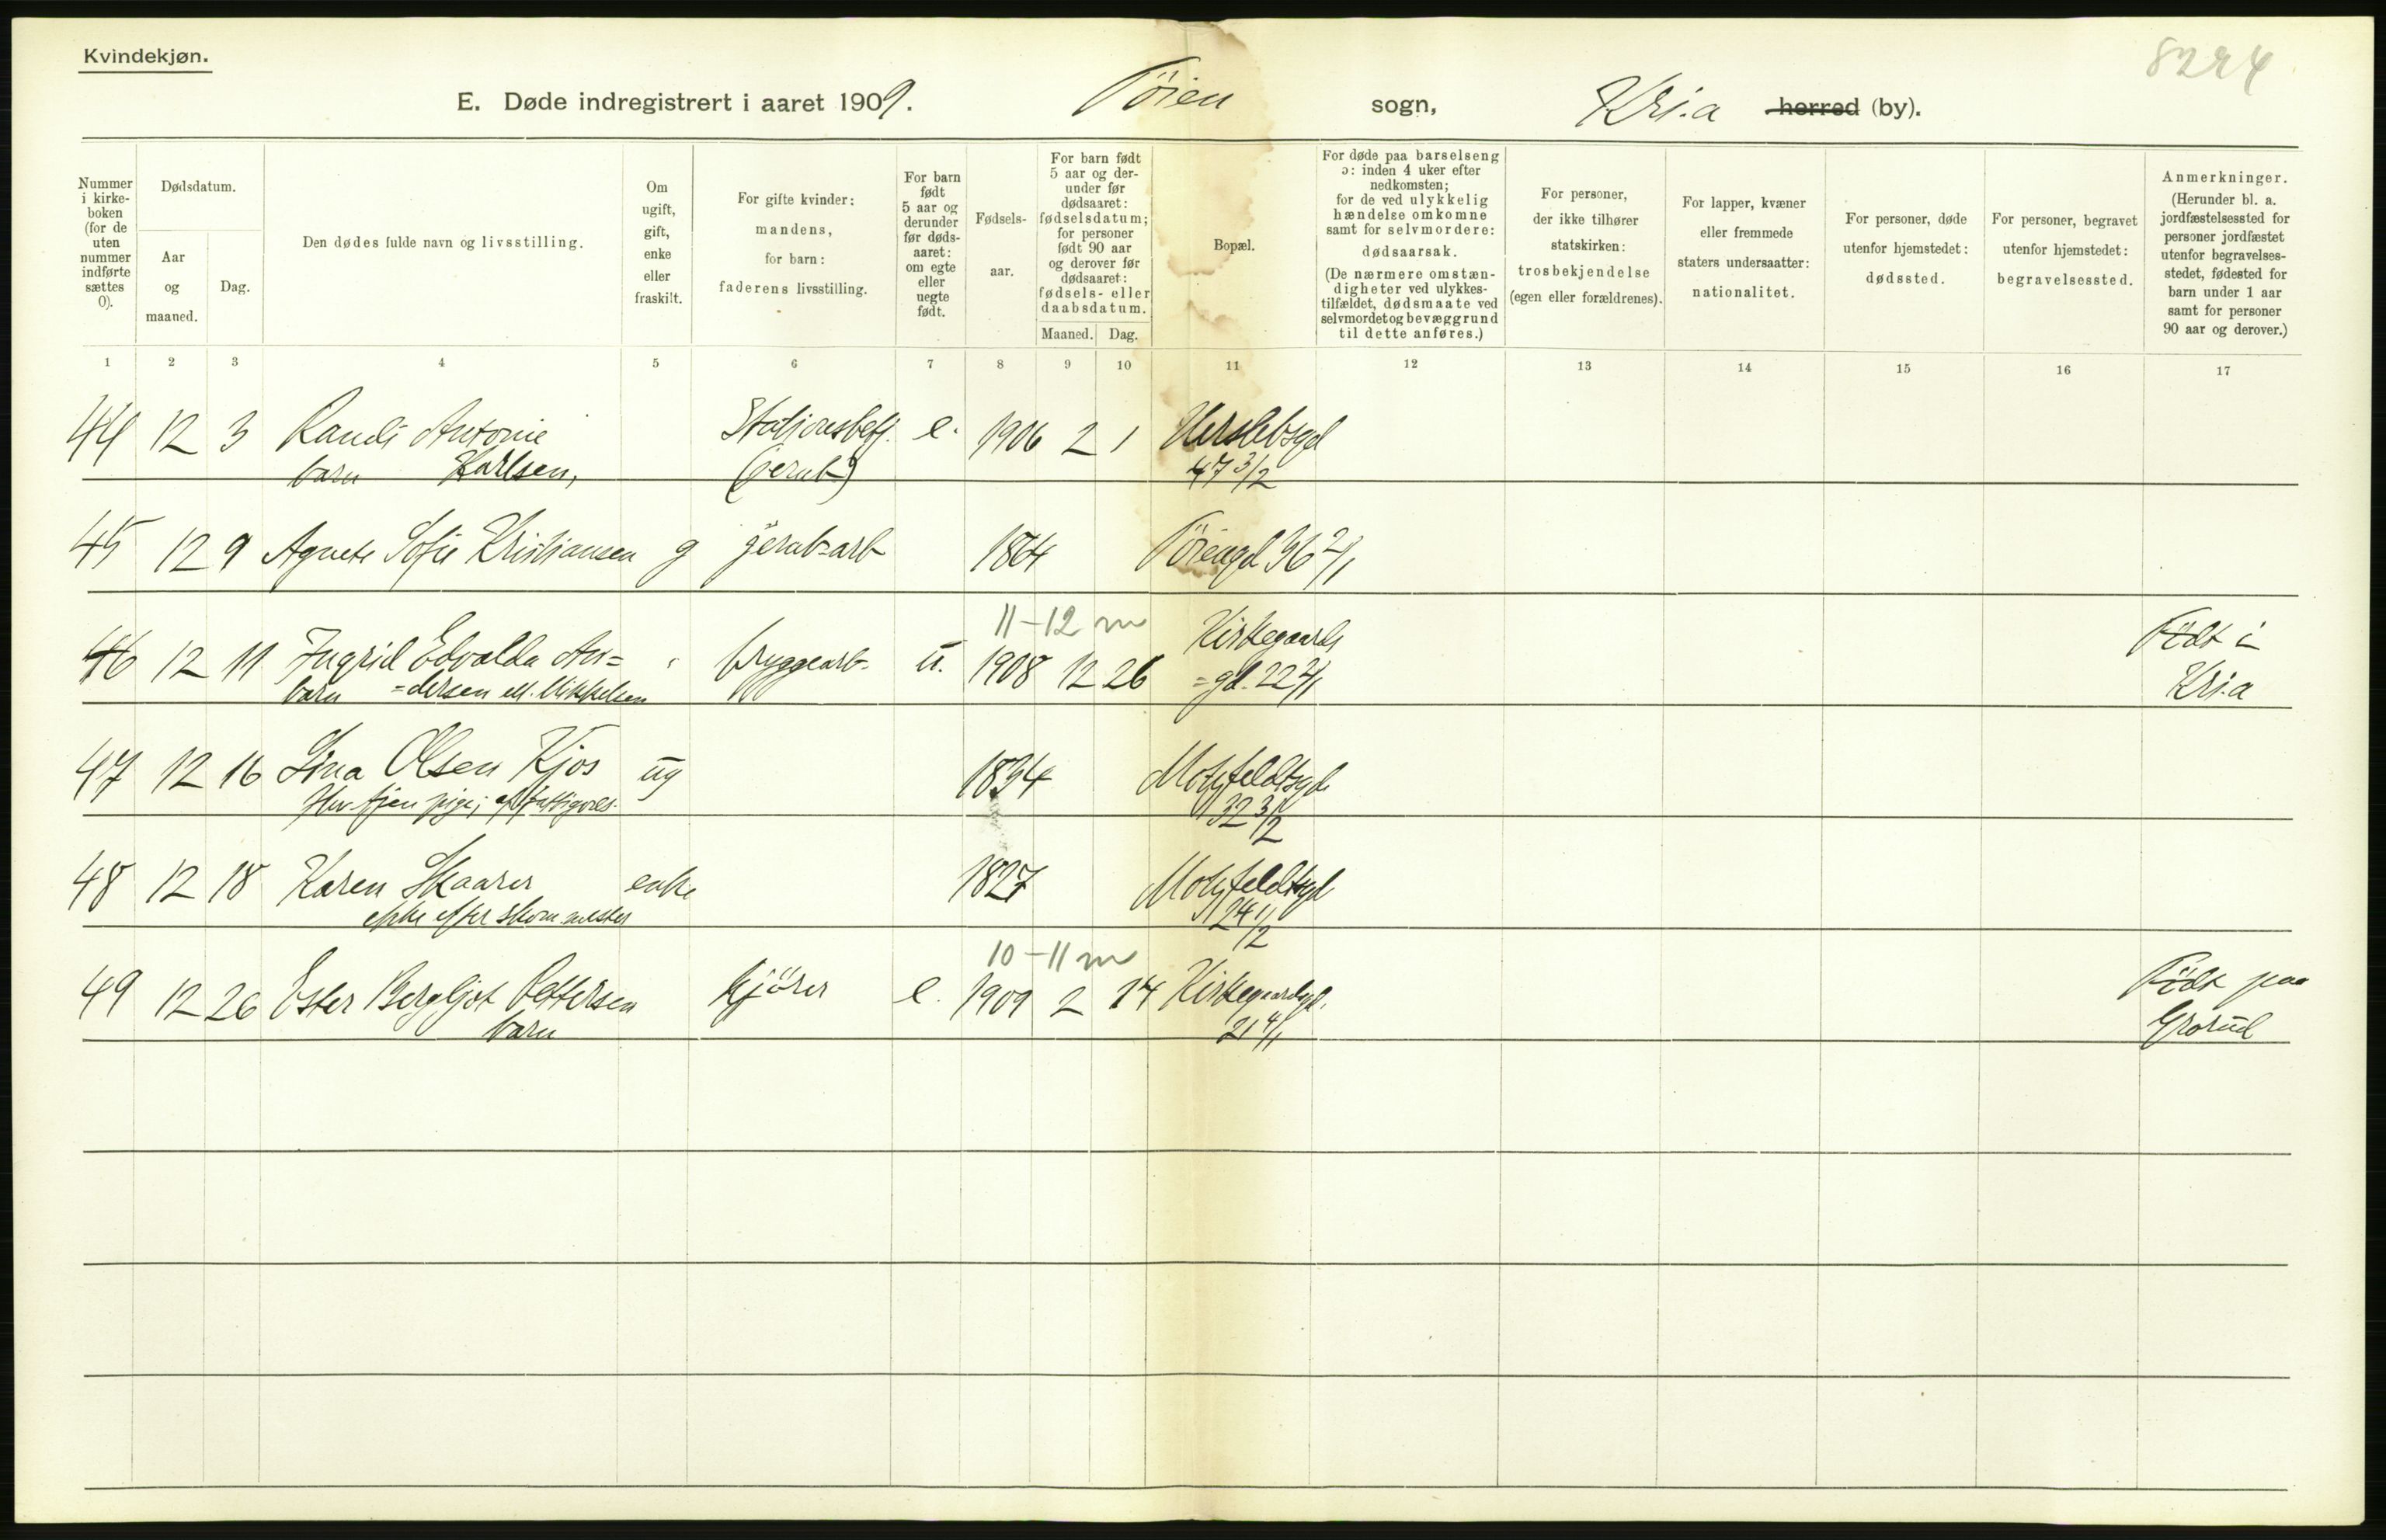 Kvindekjøn.
8224
E. Døde indregistrert i aaret 1909. Töien sogn, Kri.a herred (by).
Nummer i kirke- boken (for de uten nummer indførte sættes 0).
Dødsdatum.
Aar og maaned.
Dag.
Den dødes fulde navn og livsstilling.
Om ugift, gift, enke eller fraskilt.
For gifte kvinder: mandens, for barn: faderens livsstilling.
For barn født 5 aar og derunder før døds- aaret: om egte eller uegte født.
Fødsels- aar.
For barn født 5 aar og der- under før dødsaaret: fødselsdatum; for personer født 90 aar og derover før dødsaaret: fødsels- eller daabsdatum.
Maaned. Dag.
Bopæl.
For døde paa barselseng ɔ: inden 4 uker efter nedkomsten; for de ved ulykkelig hændelse omkomne samt for selvmordere: dødsaarsak. (De nærmere omstæn- digheter ved ulykkes- tilfældet, dødsmaate ved selvmordet og bevæggrund til dette anføres.)
For personer, der ikke tilhører statskirken: trosbekjendelse (egen eller forældrenes).
For lapper, kvæner eller fremmede staters undersaatter: nationalitet.
For personer, døde utenfor hjemstedet: dødssted.
For personer, begravet utenfor hjemstedet: begravelsessted.
Anmerkninger. (Herunder bl. a. jordfæstelsessted for personer jordfæstet utenfor begravelses- stedet, fødested for barn under 1 aar samt for personer 90 aar og derover.)
1 2 3 4 5 6 7 8 9 10 11 12 13 14 15 16 17
44 12 3 Randi Antonie Stationsbetj. e. 1906 2 1 Herslebsgd
barn Karlsen, (jernb) 47 3/2
45 12 9 Agnete Sofie Kristiansen g jernb=arb 1864 Töiengd 36 2/1
11-12 m
46 12 11 Ingrid Edvalda An= bryggearb. u. 1908 12 26 Kirkegaards Födt i
barn =dersen ell. Mikkelsen =gd. 22 2/1 Kri.a
47 12 16 Lina Olsen Kjos ug 1834 Motzfeldtsgd
fhv. tjen.pige; af fattigvæs. 32 3/2
48 12 18 Karen Skaarer enke 1827 Motzfeldtsgd
enke efter skom.mester 24 1/2
10-11 m
49 12 26 Ester Bergljot Pettersen kjörer e. 1909 2 14 Kirkegaardsgd. Födt paa
barn 21 4/1 Grorud